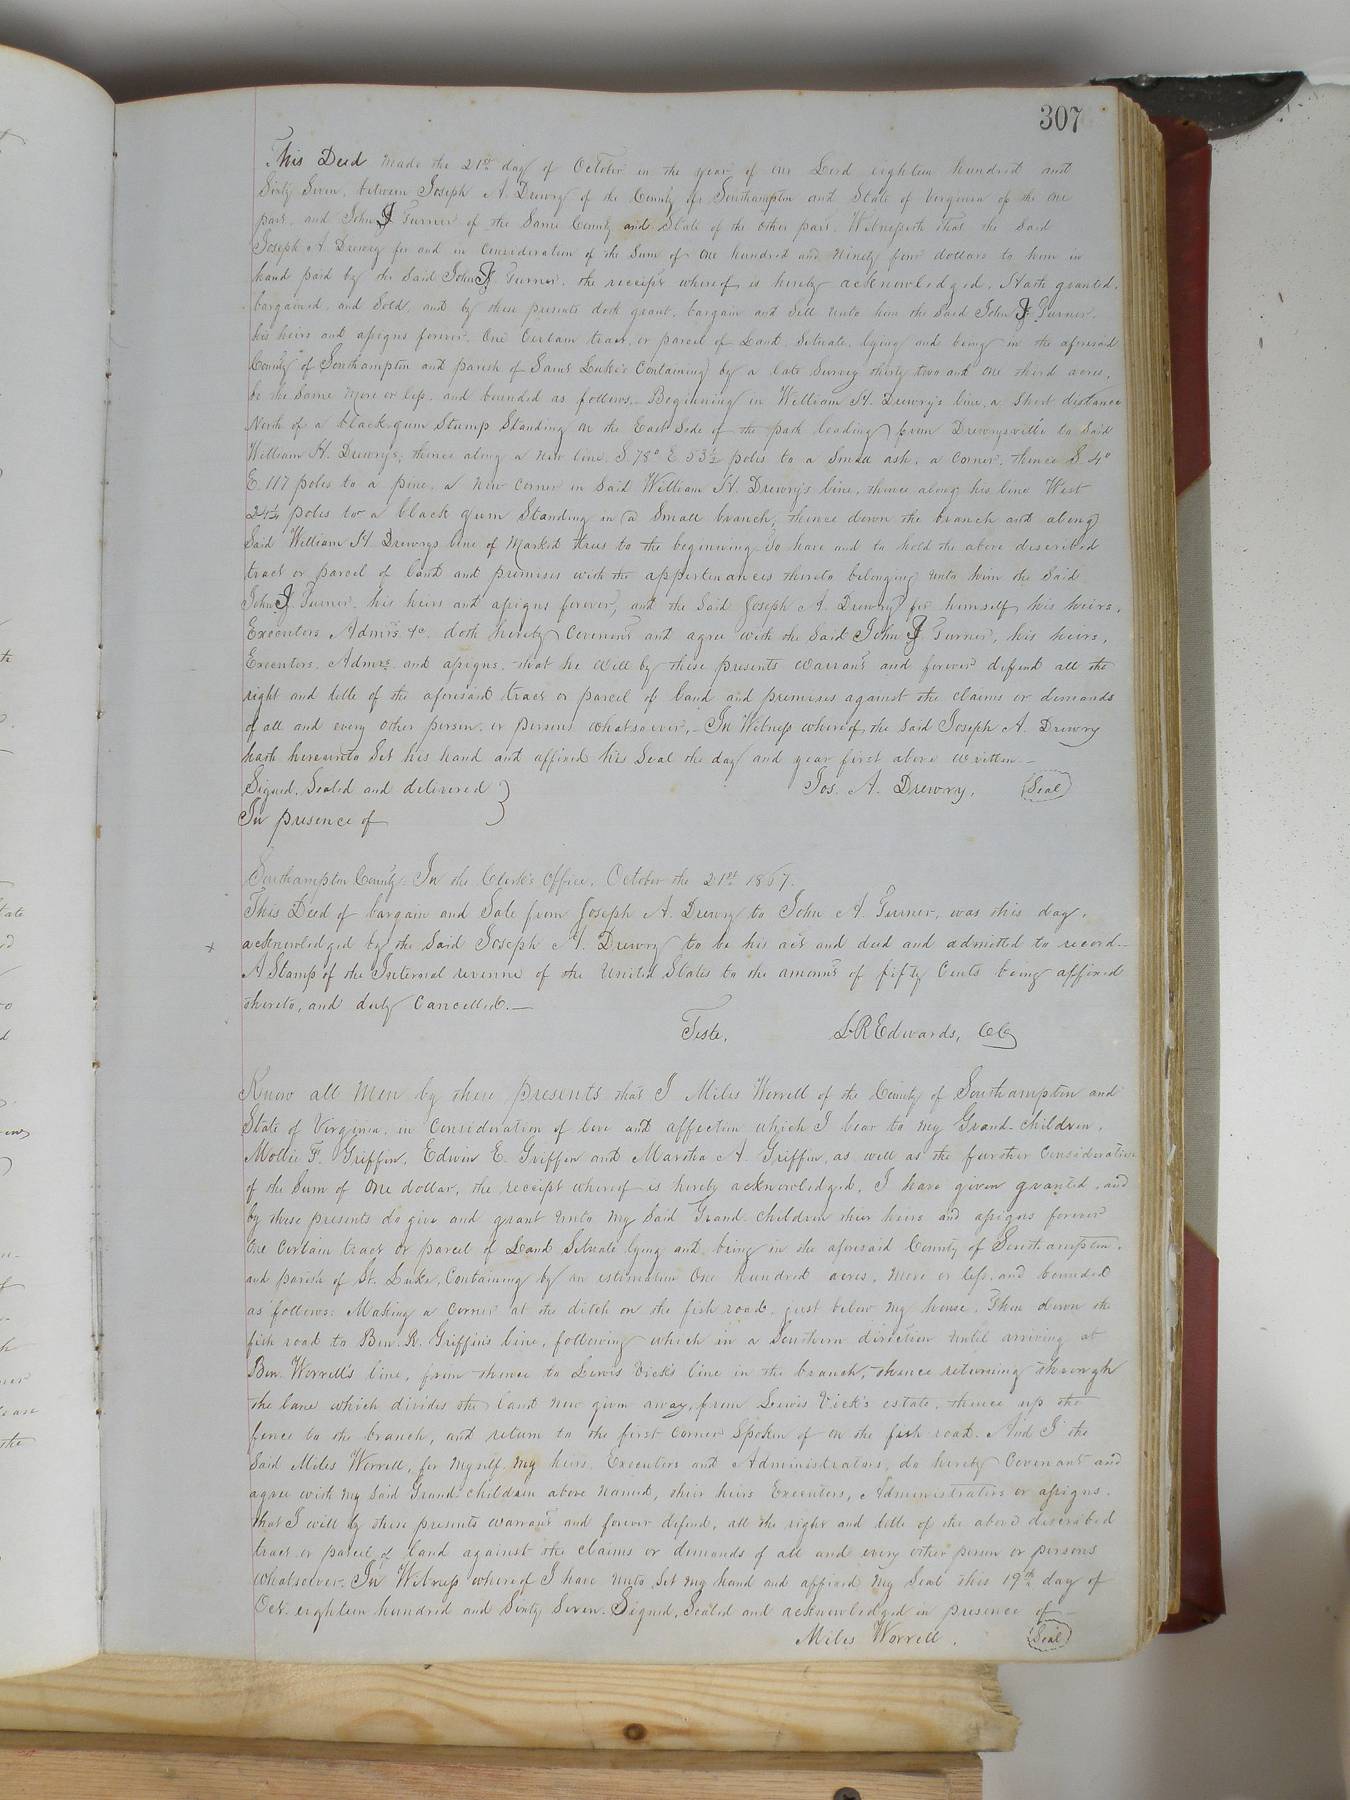 307
This Deed made the 21st day of October in the year of our Lord eighteen hundred and
Sixty Seven, between Joseph A. Drewry of the County of Southampton and State of Virginia of the one
part, and John J Turner of the Same County and State of the other part. Witnesseth that the Said
Joseph A. Drewry for and in Consideration of the Sum of one hundred and Ninety four dollars to him in
hand paid by the Said John J Turner, the receipt whereof is hereby acknowledged, Hath granted,
bargained, and Sold, and by these presents doth grant, bargain and Sell unto him the Said John J Turner,
his heirs and assigns forever, One Certain tract or parcel of Land, Situate, lying and being in the aforesaid
County of Southampton and parish of Saint Luke's Containing by a late Survey thirty two and one third acres,
be the Same More or less, and bounded as follows. Beginning in William H. Drewry's line, a Short distance
North of a black gum Stump Standing on the East Side of the path leading from Drewrysville to Said
William H. Drewry's, thence along a new line, S. 78° E 53½ poles to a Small ash, a Corner, thence S. 4°
E. 117 poles to a pine, a new Corner in Said William H. Drewry's line, thence along his line West
24¼ poles to a black gum Standing in a Small branch, thence down the branch and along
Said William H. Drewrys line of Marked trees to the beginning. To have and to hold the above described
tract or parcel of land and premises with the appertenances thereto belonging unto him the Said
John J. Turner, his heirs and assigns forever, and the Said Joseph A. Drewry for himself, his heirs,
Executors, Admrs. &c. doth hereby Covenant and agree with the Said John J Turner, his heirs,
Executors, Admrs. and assigns, that he will by these presents warrant and forever defend all the
right and title of the aforesaid tract or parcel of land and premises against the claims or demands
of all and every other person, or persons whatsoever. In Witness whereof, the Said Joseph A. Drewry
hath hereunto Set his hand and affixed his Seal the day and year first above written.
Signed, Sealed and delivered } Jos. A. Drewry, (Seal)
In presence of
Southampton County. In the Clerk's Office, October the 21st 1867.
This Deed of bargain and Sale from Joseph A. Drewry to John A. Turner, was this day,
x acknowledged by the Said Joseph A. Drewry to be his act and deed and admitted to record.
A Stamp of the Internal revenue of the United States to the amount of fifty Cents being affixed
thereto, and duly Cancelled.
Teste, L R Edwards, CC
Know all Men by these presents that I Miles Worrell of the County of Southampton and
State of Virginia, in Consideration of love and affection which I bear to my Grand-children,
Mollie F. Griffin, Edwin E. Griffin and Martha A. Griffin, as well as the further Consideration
of the Sum of One dollar, the receipt whereof is hereby acknowledged, I have given granted, and
by these presents do give and grant unto my Said Grand-children their heirs and assigns forever
One Certain tract or parcel of Land Situate lying and being in the aforesaid County of Southampton,
and parish of St. Luke, Containing by an estimation One hundred acres, More or less, and bounded
as follows: Making a Corner at the ditch on the fish road, just below my house, Then down the
fish road to Ben. R. Griffin's line, following which in a Southern direction until arriving at
Ben. Worrell's line, from thence to Lewis Vick's line in the branch, thence returning through
the lane which divides the land now given away, from Lewis Vick's estate, thence up the
fence to the branch, and return to the first Corner Spoken of on the fish road. And I the
Said Miles Worrell, for Myself, my heirs, Executors and Administrators, do hereby Covenant and
agree with my Said Grand-children above named, their heirs Executors, Administrators or assigns.
that I will by these presents warrant and forever defend, all the right and title of the above described
tract or parcel of land against the claims or demands of all and every other person or persons
whatsoever. In Witness whereof I have unto Set my hand and affixed my Seal this 19th day of
Oct. eighteen hundred and Sixty Seven. Signed, Sealed and acknowledged in presence of
Miles Worrell. (Seal)